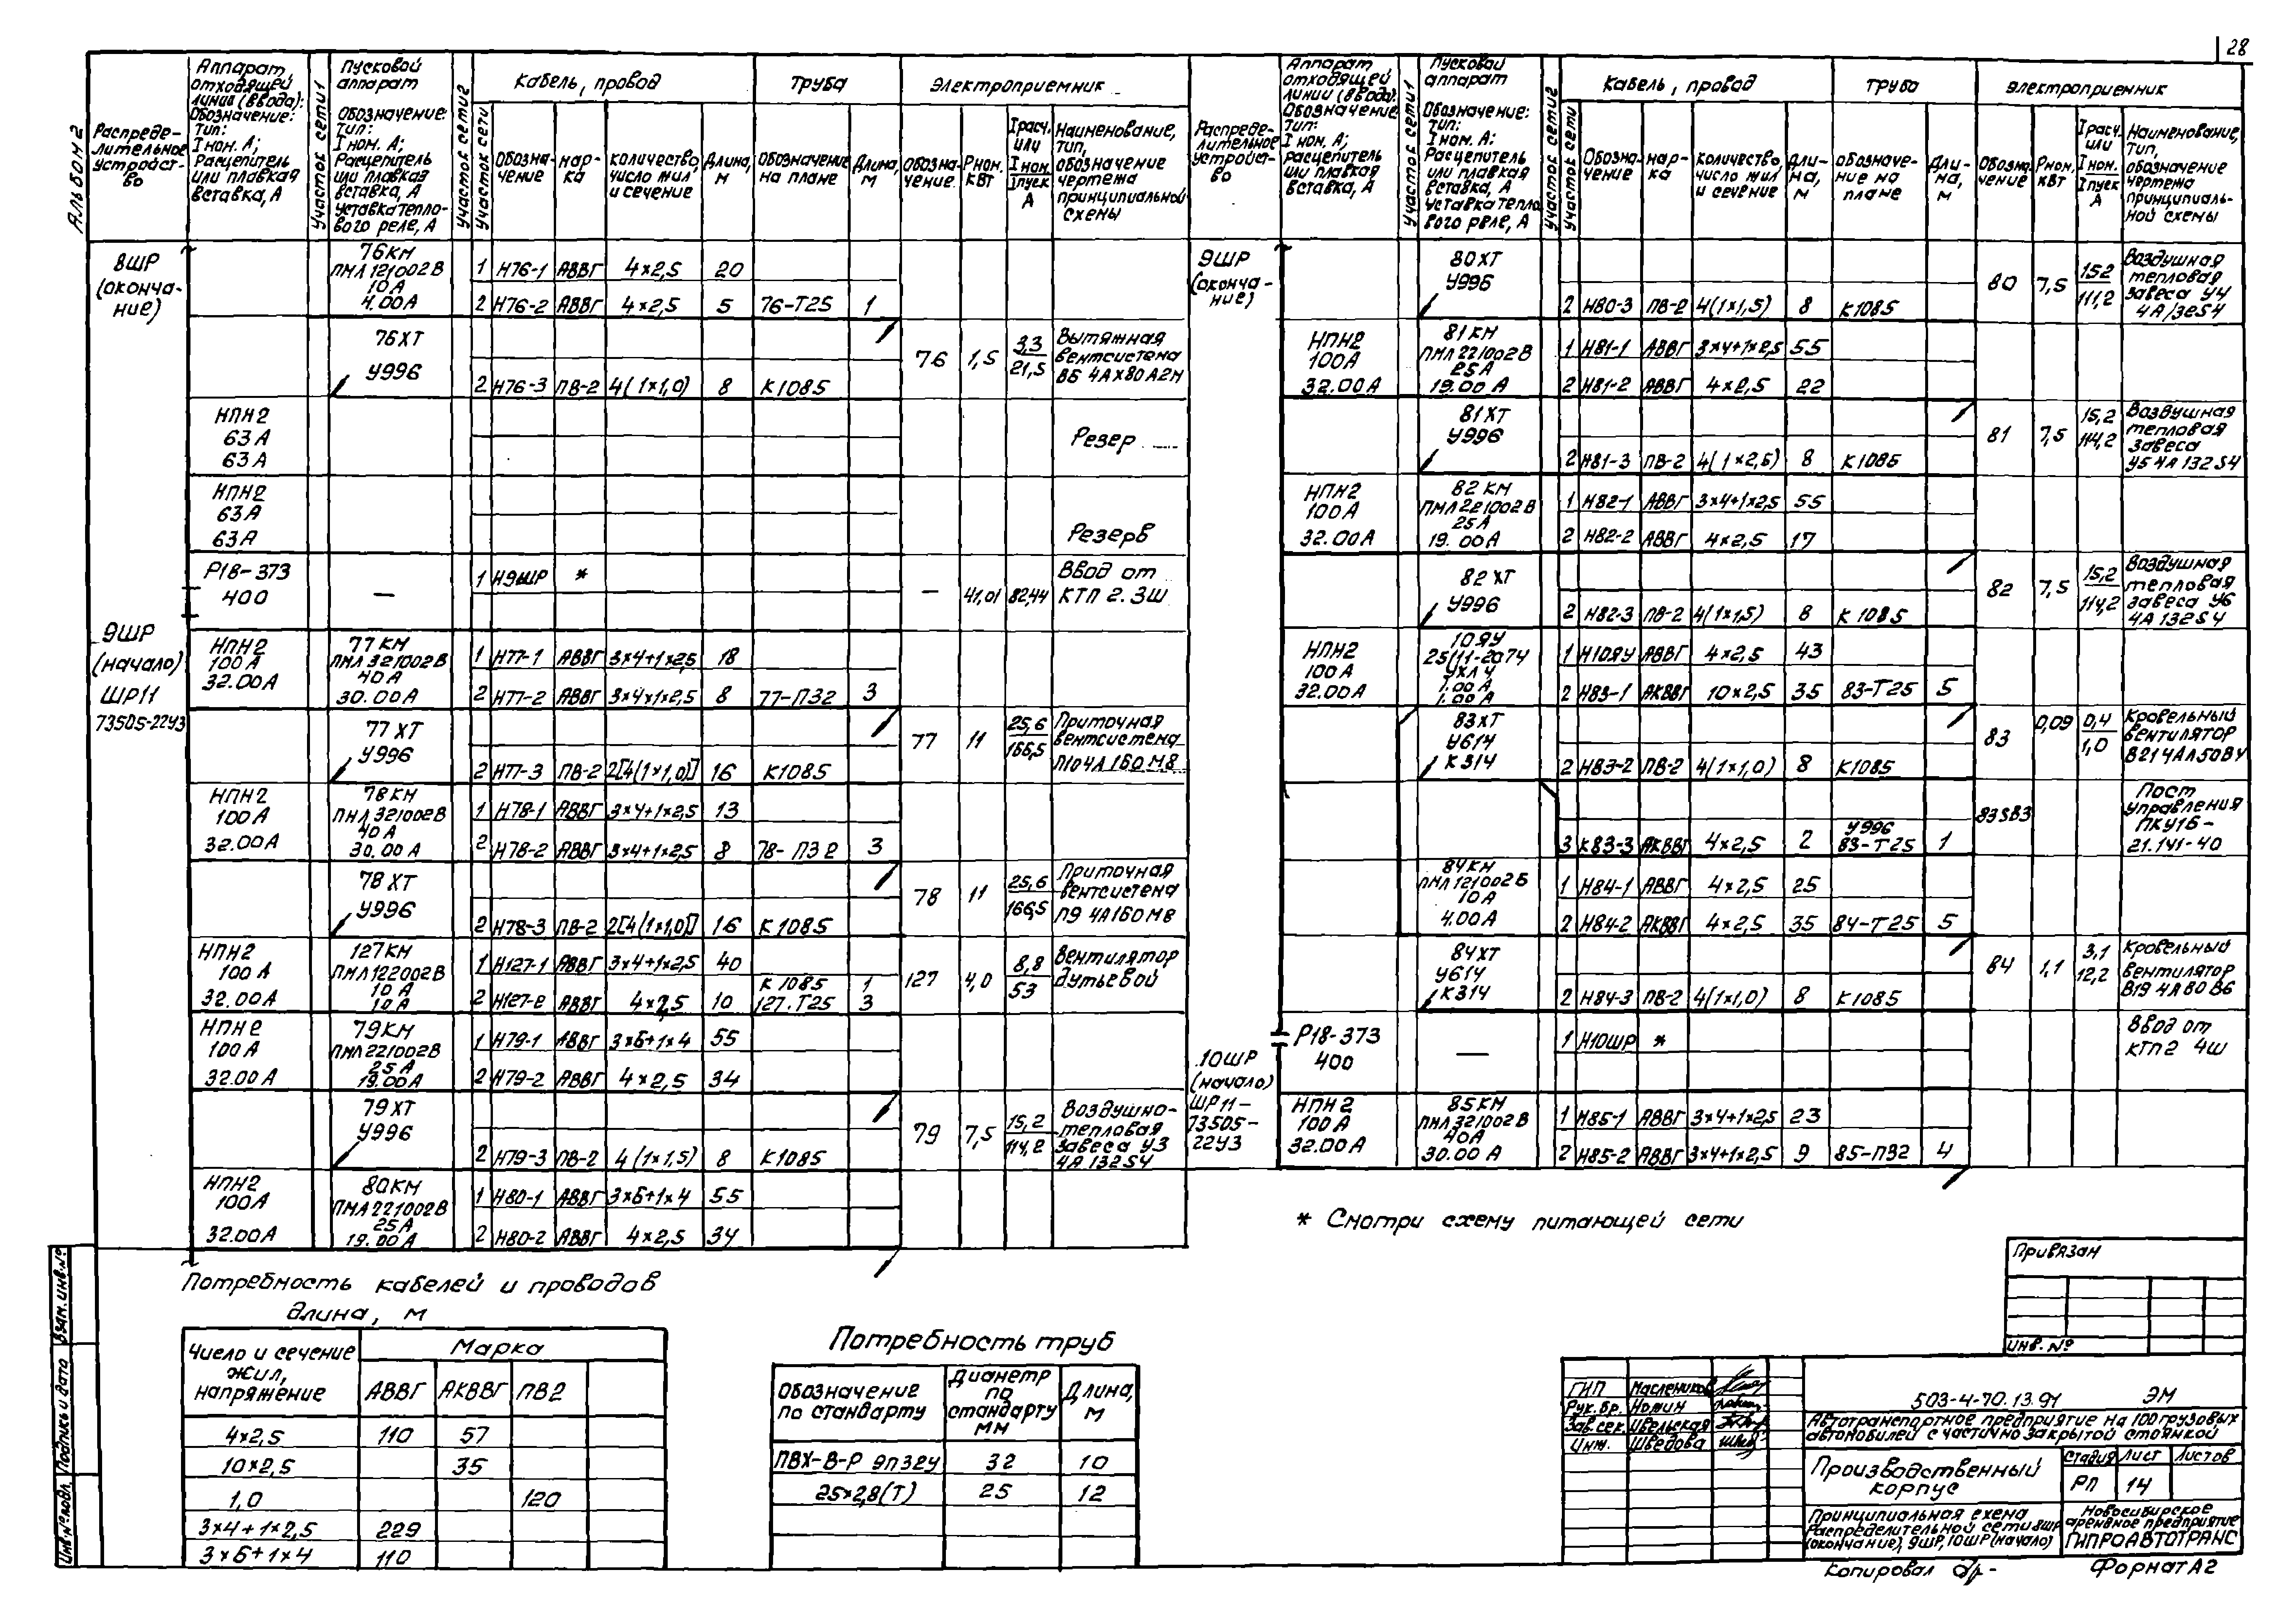 28
Альбом 2
Распреде-
лительное
устройст-
во
Аппарат
отходящей
линии (ввода):
Обозначение:
Тип:
Iном. А;
Расцепитель
или плавкая
вставка, А
Участок сети 1
Пусковой
аппарат
Обозначение:
Тип:
Iном. А;
Расцепитель
или плавкая
вставка, А
уставка тепло-
вого реле, А
Участок сети 2
Участок сети
Кабель, провод
Обозна-
чение
мар-
ка
количество,
число жил
и сечение
Длина,
м
Труба
Обозначение
на плане
Длина,
м
Электроприемник
Обозна-
чение
Рном.
кВт
Iрасч.
или
Iном.
Iпуск
А
Наименование,
тип,
обозначение
чертежа
принципиальной
схемы
8ШР
(оконча-
ние)
76КМ
ПМЛ121002В
10А
4.00А
1 Н76-1 АВВГ 4×2,5 20
2 Н76-2 АВВГ 4×2,5 5 76-Т25 1
76ХТ
У996
2 Н76-3 ПВ-2 4(1×1,0) 8 К1085
76 1,5 3,3
21,5
Вытяжная
вентсистема
В6 4АХ80А2М
НПН2
63А
63А
Резер
НПН2
63А
63А
Резерв
Р18-373
400
—
1 Н9ШР *
— 41,01 82,44
Ввод от
КТП 2. 3Ш
9ШР
(начало)
ШР11
73505-22У3
НПН2
100А
32.00А
77КМ
ПМЛ321002В
40А
30.00А
1 Н77-1 АВВГ 3×4+1×2,5 18
2 Н77-2 АВВГ 3×4×1×2,5 8 77-П32 3
77ХТ
У996
2 Н77-3 ПВ-2 2[4(1×1,0)] 16 К1085
77 11 25,6
166,5
Приточная
вентсистема
П10 4А160М8
НПН2
100А
32.00А
78КМ
ПМЛ321002В
40А
30.00А
1 Н78-1 АВВГ 3×4+1×2,5 13
2 Н78-2 АВВГ 3×4+1×2,5 8 78-П32 3
78ХТ
У996
2 Н78-3 ПВ-2 2[4(1×1,0)] 16 К1085
78 11 25,6
166,5
Приточная
вентсистема
П9 4А160М8
НПН2
100А
32.00А
127КМ
ПМЛ122002В
10А
10А
1 Н127-1 АВВГ 3×4+1×2,5 40
К1085 1
2 Н127-2 АВВГ 4×2,5 10 127.Т25 3
127 4,0 8,8
53
Вентилятор
дутьевой
НПН2
100А
32.00А
79КМ
ПМЛ221002В
25А
19.00А
1 Н79-1 АВВГ 3×6+1×4 55
2 Н79-2 АВВГ 4×2,5 34
79ХТ
У996
2 Н79-3 ПВ-2 4(1×1,5) 8 К1085
79 7,5 15,2
114,2
Воздушно-
тепловая
завеса У3
4А132S4
НПН2
100А
32.00А
80КМ
ПМЛ221002В
25А
19.00А
1 Н80-1 АВВГ 3×6+1×4 55
2 Н80-2 АВВГ 4×2,5 34
Распреде-
лительное
устройст-
во
Аппарат
отходящей
линии (ввода):
Обозначение
Тип:
Iном. А;
расцепитель
или плавкая
вставка, А
Участок сети 1
Пусковой
аппарат
Обозначение:
Тип:
Iном. А:
Расцепитель
или плавкая
вставка, А
уставка тепло
вого реле, А
Участок сети 2
Участок сети
Кабель, провод
Обозна-
чение
мар-
ка
количество,
число жил
и сечение
Дли-
на,
м
Труба
обозначе-
ние на
плане
Дли-
на,
м
Электроприемник
Обозна-
чение
Рном.
кВт
Iрасч.
или
Iном.
Iпуск
А
Наименование,
Тип,
обозначение
чертежа
принципиаль-
ной схемы
9ШР
(оконча-
ние)
80ХТ
У996
2 Н80-3 ПВ-2 4(1×1,5) 8 К1085
80 7,5 152
111,2
Воздушная
тепловая
завеса У4
4А132S4
НПН2
100А
32.00А
81КМ
ПМЛ221002В
25А
19.00А
1 Н81-1 АВВГ 3×4+1×2,5 55
2 Н81-2 АВВГ 4×2,5 22
81ХТ
У996
2 Н81-3 ПВ-2 4(1×2,5) 8 К1085
81 7,5 15,2
114,2
Воздушная
тепловая
завеса
У5 4А132S4
НПН2
100А
32.00А
82КМ
ПМЛ221002В
25А
19.00А
1 Н82-1 АВВГ 3×4+1×2,5 55
2 Н82-2 АВВГ 4×2,5 17
82ХТ
У996
2 Н82-3 ПВ-2 4(1×1,5) 8 К1085
82 7,5 15,2
114,2
Воздушная
тепловая
завеса У6
4А132S4
НПН2
100А
32.00А
10ЯУ
25/11-2074
УХЛ4
1.00А
1.00А
1 Н10ЯУ АВВГ 4×2,5 43
2 Н83-1 АКВВГ 10×2,5 35 83-Т25 5
83ХТ
У614
К314
2 Н83-2 ПВ-2 4(1×1,0) 8 К1085
83 0,09 0,4
1,0
Кровельный
вентилятор
В21 4АА50В4
У996
3 К83-3 АКВВГ 4×2,5 2 83-Т25 1
83SВ3
Пост
управления
ПКУ16-
21.141-40
84КМ
ПМЛ121002Б
10А
4.00А
1 Н84-1 АВВГ 4×2,5 25
2 Н84-2 АКВВГ 4×2,5 35 84-Т25 5
84ХТ
У614
К314
2 Н84-3 ПВ-2 4(1×1,0) 8 К1085
84 1,1 3,1
12,2
Кровельный
вентилятор
В19 4А80В6
Р18-373
400
—
1 Н10ШР *
Ввод от
КТП2 4Ш
10ШР
(начало)
ШР11-
73505-
22У3
НПН2
100А
32.00А
85КМ
ПМЛ321002В
40А
30.00А
1 Н85-1 АВВГ 3×4+1×2,5 23
2 Н85-2 АВВГ 3×4+1×2,5 9 85-П32 4
* Смотри схему питающей сети
Потребность кабелей и проводов
длина, м
Число и сечение
жил,
напряжение
Марка
АВВГ АКВВГ ПВ2
4×2,5 110 57
10×2,5 35
1,0 120
3×4+1×2,5 229
3×6+1×4 110
Потребность труб
Обозначение
по стандарту
Диаметр
по
стандарту
мм
Длина,
м
ПВХ-В-Р 9п32У 32 10
25×2,8(Т) 25 12
Привязан
Инв. №
ГИП Маслеников
Рук.бр. Номин
Зав.сек. Швельская
Инж. Шведова
503-4-70.13.91 ЭМ
Автотранспортное предприятие на 100 грузовых
автомобилей с частично закрытой стоянкой
Производственный
корпус
Стадия Лист Листов
РП 14
Принципиальная схема
Распределительной сети 8ШР
(окончание), 9ШР, 10ШР (начало)
Новосибирское
арендное предприятие
ГИПРОАВТОТРАНС
Копировал
Формат А2
Взам. инв. №
Подпись и дата
Инв. № подл.